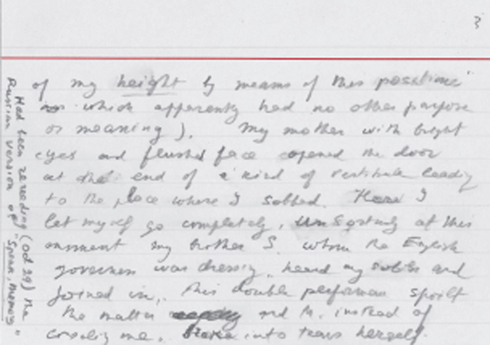 3
of my height by means of this pastime
which apparently had no other purpose
or meaning ). My mother with bright
eyes and flushed face opened the door
at the end of a kind of vestibule leading
to the place where I sobbed. Here I
let myself go completely, at this
moment my brother S. whom the English
governess was dressing, heard my sobs and
joined in. This double performance spoilt
the matter and M. instead of
consoling me, broke into tears herself.
Had been rereading (Oct 29) the
Russian version of "Speak, Memory"